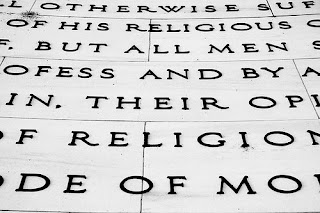 L OTHERWISE SUF
OF HIS RELIGIOUS O
F. BUT ALL MEN S
OFESS AND BY A
IN. THEIR OPI
OF RELIGION
ODE OF MO